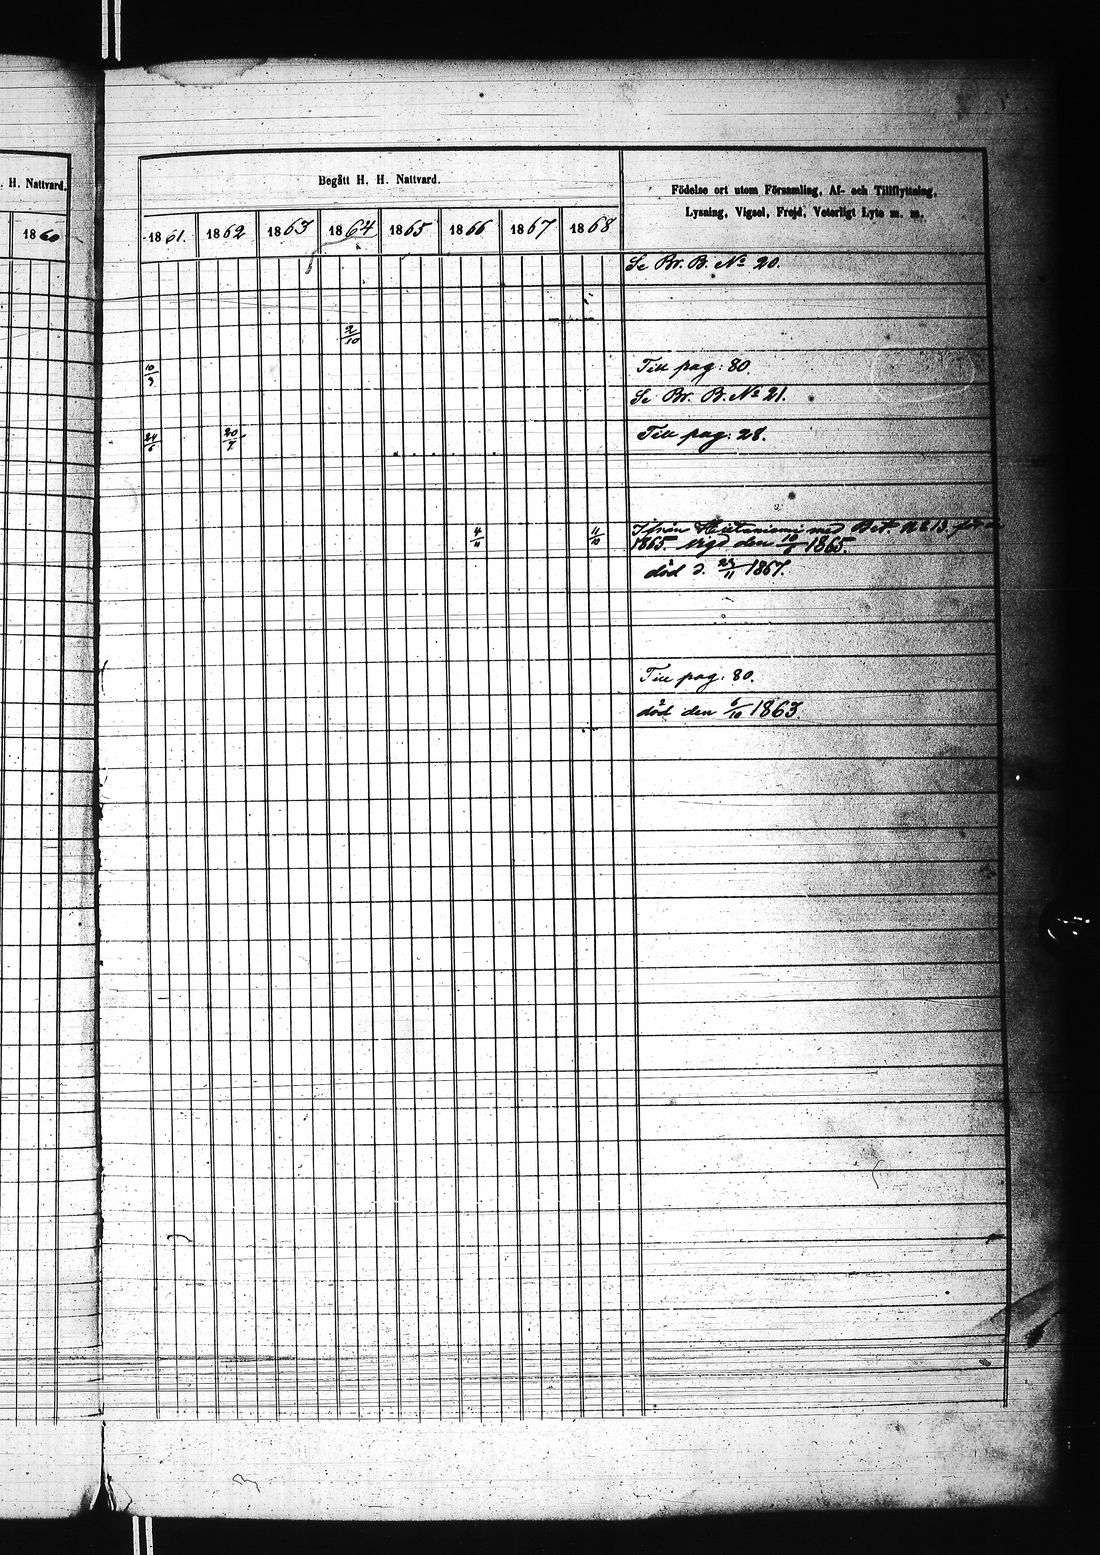 . H. Nattvard.
1860
Begått H. H. Nattvard.
Födelse ort utom Församling, Af- och Tillflyttning,
Lysning, Vigsel, Frejd, Veterligt Lyte m. m.
1861. 1862 1863 1864 1865 1866 1867 1868
Se Br. B. No 20.
2/10
10/3 Till pag: 80.
Se Br. B. No 21.
24/6 20/7 Till pag: 28.
4/11 11/10 Ifrån med Bet. No 13. för
1865. Vigd den 10/6 1865.
död d. 23/11 1867.
Till pag. 80.
död den 5/10 1863.